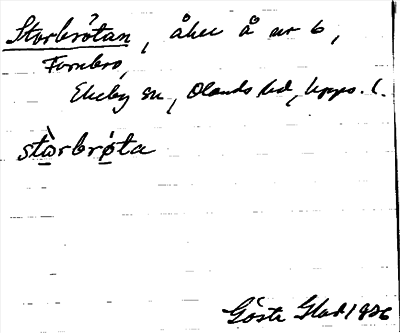 Storbrötan, åker å nr 6,
Fornbro,
Ekeby sn, Olands hd, Upps. l.
stòrbrǿta
Gösta Glad 1926